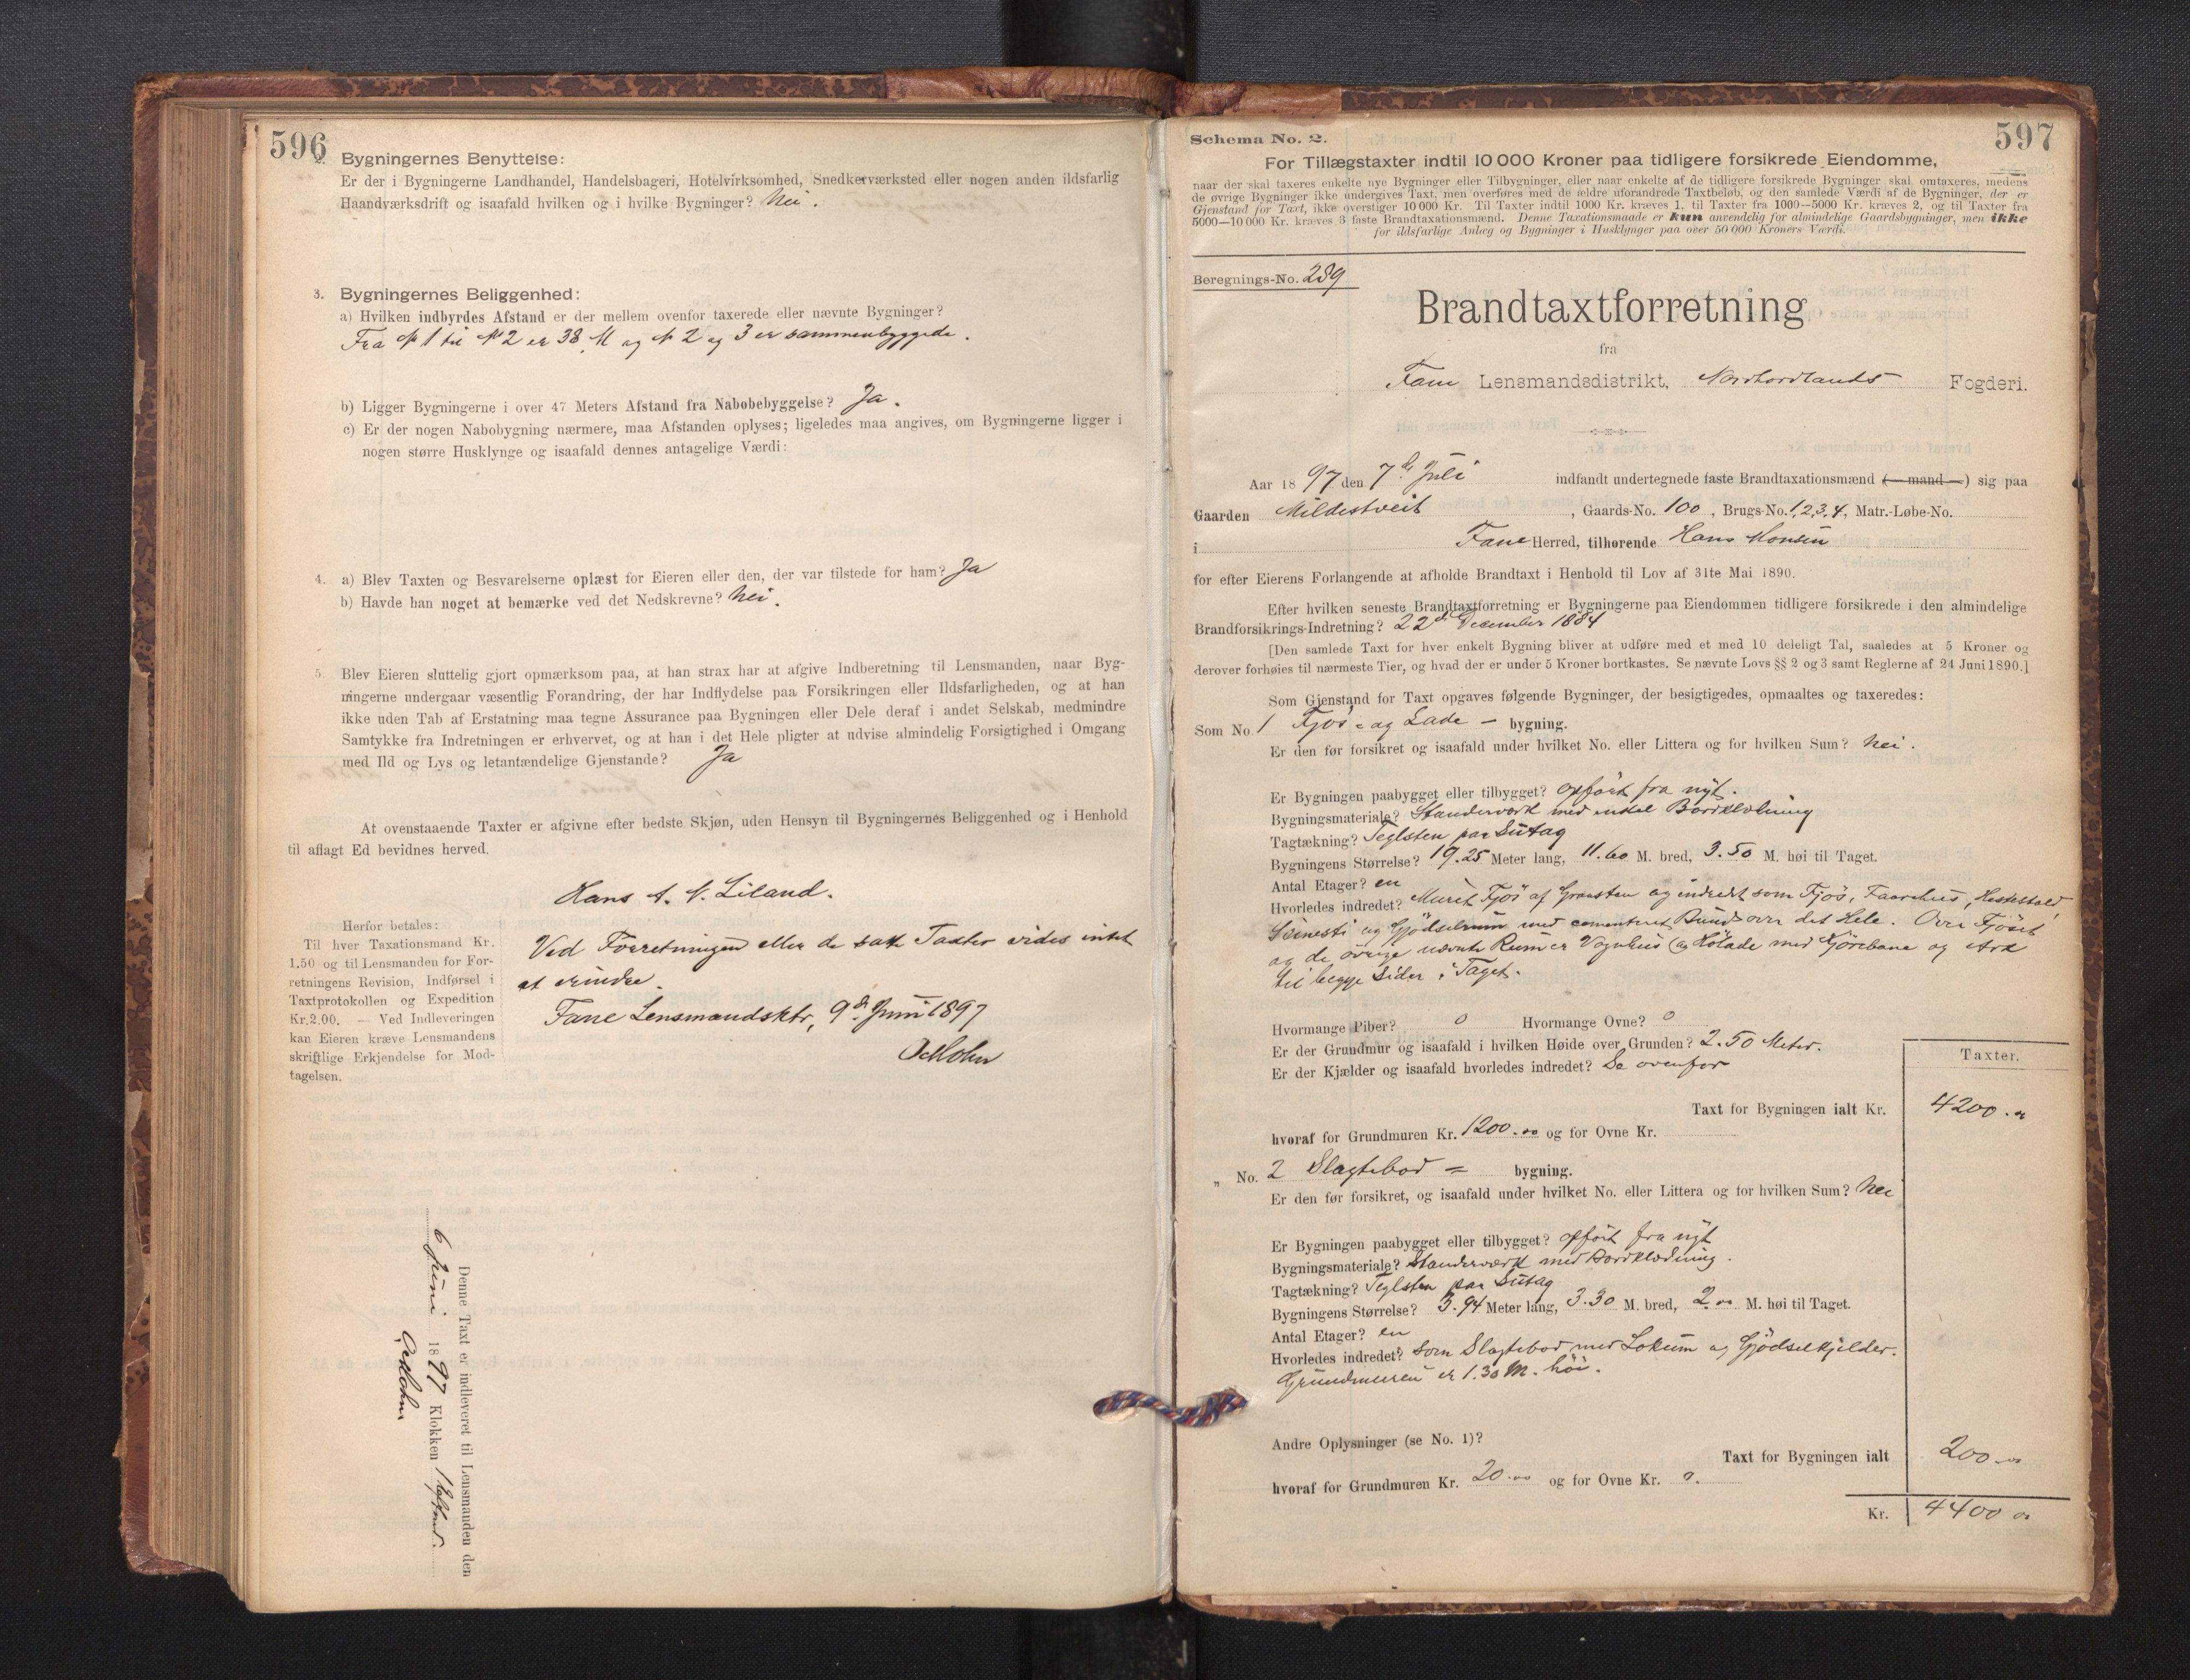 596
2. Bygningernes Benyttelse:
Er der i Bygningerne Landhandel, Handelsbageri, Hotelvirksomhed, Snedkerværksted eller nogen anden ildsfarlig
Haandværksdrift og isaafald hvilken og i hvilke Bygninger? Nei.
3. Bygningernes Beliggenhed:
a) Hvilken indbyrdes Afstand er der mellem ovenfor taxerede eller nævnte Bygninger?
Fra № 1 til № 2 er 38 M og № 2 og 3 er sammenbyggede.
b) Ligger Bygningerne i over 47 Meters Afstand fra Nabobebyggelse? Ja.
c) Er der nogen Nabobygning nærmere, maa Afstanden oplyses; ligeledes maa angives, om Bygningerne ligger i
nogen større Husklynge og isaafald dennes antagelige Værdi:
4. a) Blev Taxten og Besvarelserne oplæst for Eieren eller den, der var tilstede for ham? Ja
b) Havde han noget at bemærke ved det Nedskrevne? Nei.
5. Blev Eieren sluttelig gjort opmærksom paa, at han strax har at afgive Indberetning til Lensmanden, naar Byg-
ningerne undergaar væsentlig Forandring, der har Indflydelse paa Forsikringen eller Ildsfarligheden, og at han
ikke uden Tab af Erstatning maa tegne Assurance paa Bygningen eller Dele deraf i andet Selskab, medmindre
Samtykke fra Indretningen er erhvervet, og at han i det Hele pligter at udvise almindelig Forsigtighed i Omgang
med Ild og Lys og letantændelige Gjenstande? Ja
At ovenstaaende Taxter er afgivne efter bedste Skjøn, uden Hensyn til Bygningernes Beliggenhed og i Henhold
til aflagt Ed bevidnes herved.
Hans A. N. Liland.
Herfor betales:
Til hver Taxationsmand Kr.
1.50 og til Lensmanden for For-
retningens Revision, Indførsel i
Taxtprotokollen og Expedition
Kr. 2.00. — Ved Indleveringen
kan Eieren kræve Lensmandens
skriftlige Erkjendelse for Mod-
tagelsen.
Ved Forretningen eller de satte Taxter vides intet
at erindre.
Fane Lensmandsktr, 9de Juni 1897
Denne Taxt er indleveret til Lensmanden den
6 Juni 1897 Klokken
597
Schema No. 2.
For Tillægstaxter indtil 10 000 Kroner paa tidligere forsikrede Eiendomme,
naar der skal taxeres enkelte nye Bygninger eller Tilbygninger, eller naar enkelte af de tidligere forsikrede Bygninger skal omtaxeres, medens
de øvrige Bygninger ikke undergives Taxt, men overføres med de ældre uforandrede Taxtbeløb, og den samlede Værdi af de Bygninger, der er
Gjenstand for Taxt, ikke overstiger 10 000 Kr. Til Taxter indtil 1000 Kr. kræves 1, til Taxter fra 1000—5000 Kr. kræves 2, og til Taxter fra
5000—10 000 Kr. kræves 3 faste Brandtaxationsmænd. Denne Taxationsmaade er kun anvendelig for almindelige Gaardsbygninger, men ikke
for ildsfarlige Anlæg og Bygninger i Husklynger paa over 50 000 Kroners Værdi.
Beregnings-No. 289
Brandtaxtforretning
fra
Fane Lensmandsdistrikt, Nordhordlands Fogderi.
Aar 1897 den 7de Juli indfandt undertegnede faste Brandtaxationsmænd (— mand —) sig paa
Gaarden Mildestveit, Gaards-No. 100, Brugs-No. 1,2,3,4, Matr.-Løbe-No.
i Fane Herred, tilhørende Hans Monsen
for efter Eierens Forlangende at afholde Brandtaxt i Henhold til Lov af 31te Mai 1890.
Efter hvilken seneste Brandtaxtforretning er Bygningerne paa Eiendommen tidligere forsikrede i den almindelige
Brandforsikrings-Indretning? 22de December 1884
[Den samlede Taxt for hver enkelt Bygning bliver at udføre med et med 10 deleligt Tal, saaledes at 5 Kroner og
derover forhøies til nærmeste Tier, og hvad der er under 5 Kroner bortkastes. Se nævnte Lovs §§ 2 og 3 samt Reglerne af 24 Juni 1890.]
Som Gjenstand for Taxt opgaves følgende Bygninger, der besigtigedes, opmaaltes og taxeredes:
Som No 1 Fjös- og Lade- bygning.
Er den før forsikret og isaafald under hvilket No. eller Littera og for hvilken Sum? Nei.
Er Bygningen paabygget eller tilbygget? opført fra nyt.
Bygningsmateriale? Standerværk med enkel Bordklædning
Tagtækning? Teglsten paa Sutag
Bygningens Størrelse? 19.25 Meter lang, 11.60 M. bred, 3.50 M. høi til Taget.
Antal Etager? en
Hvorledes indredet? Muret Fjös af Graasten og indredet som Fjös, Faarehus, Hestestald,
Svinesti og Gjödselrum med cementeret Bund over det Hele. Over Fjöset
og de övrige nævnte Rum er Vognhus og Hölade med Kjörebane og Ark
til begge Sider i Taget.
Hvormange Piber? 0 Hvormange Ovne? 0
Er der Grundmur og isaafald i hvilken Høide over Grunden? 2.50 Meter.
Er der Kjælder og isaafald hvorledes indredet? Se ovenfor
Taxter.
Taxt for Bygningen ialt Kr. 4200.00
hvoraf for Grundmuren Kr. 1200.00 og for Ovne Kr.
„ No. 2 Slagtebod = bygning.
Er den før forsikret, og isaafald under hvilket No. eller Littera og for hvilken Sum? Nei
Er Bygningen paabygget eller tilbygget? opført fra nyt
Bygningsmateriale? Standerværk med Bordklædning.
Tagtækning? Teglsten paa Sutag
Bygningens Størrelse? 3.94 Meter lang, 3.30 M. bred, 2.00 M. høi til Taget.
Antal Etager? en
Hvorledes indredet? som Slagtebod med Lokum og Gjödselkjelder.
Grundmuren er 1.30 M. höi.
Andre Oplysninger (se No. 1)?
Taxt for Bygningen ialt 200.00
hvoraf for Grundmuren Kr. 20.00 og for Ovne Kr. 0.
Kr. 4400 00